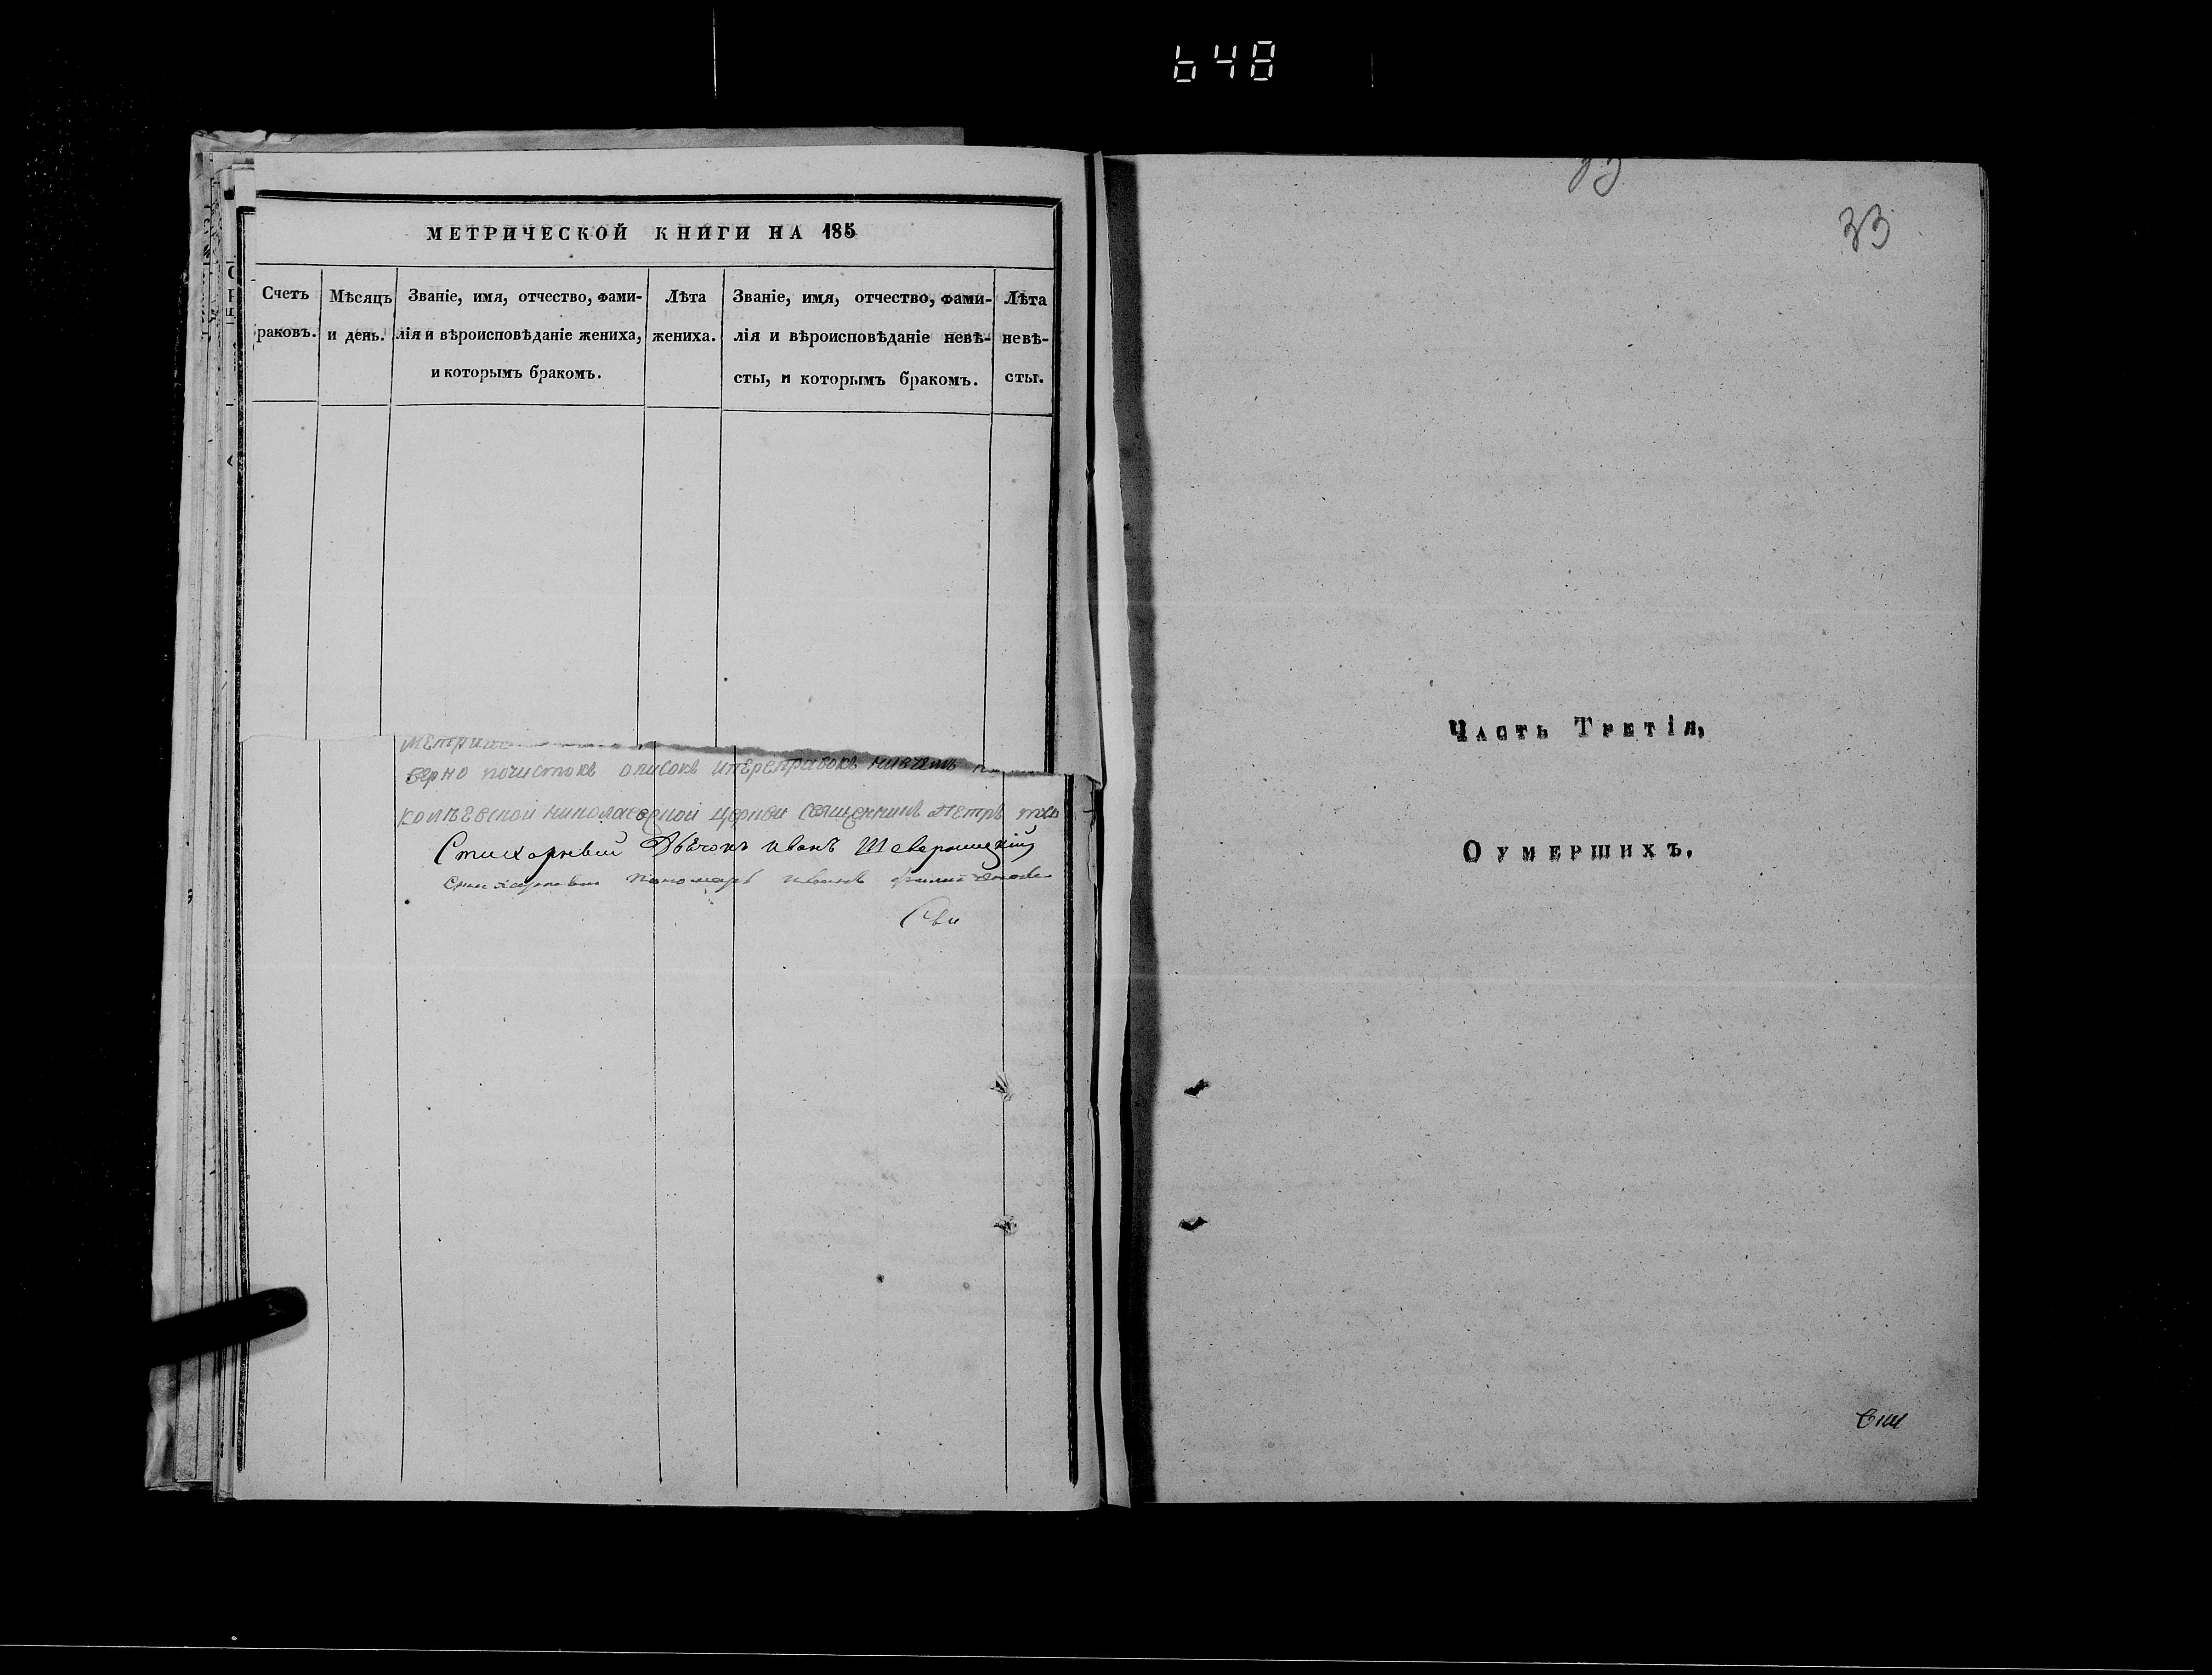 648
МЕТРИЧЕСКОЙ КНИГИ НА 185
Счетъ
раковъ.
Мѣсяцъ
и день.
Званіе, имя, отчество, фами-
лія и вѣроисповѣданіе жениха,
и которымъ бракомъ.
Лѣта
жениха.
Званіе, имя, отчество, фами-
лія и вѣроисповѣданіе невѣ-
сты, и которымъ бракомъ.
Лѣта
невѣ-
сты.
верно почистокъ описокъ
Николаевской церкви священникъ Петръ
Стихарный Дьячокъ Иванъ
пономарь Иванъ
33
Часть Третія,
О умершихъ.